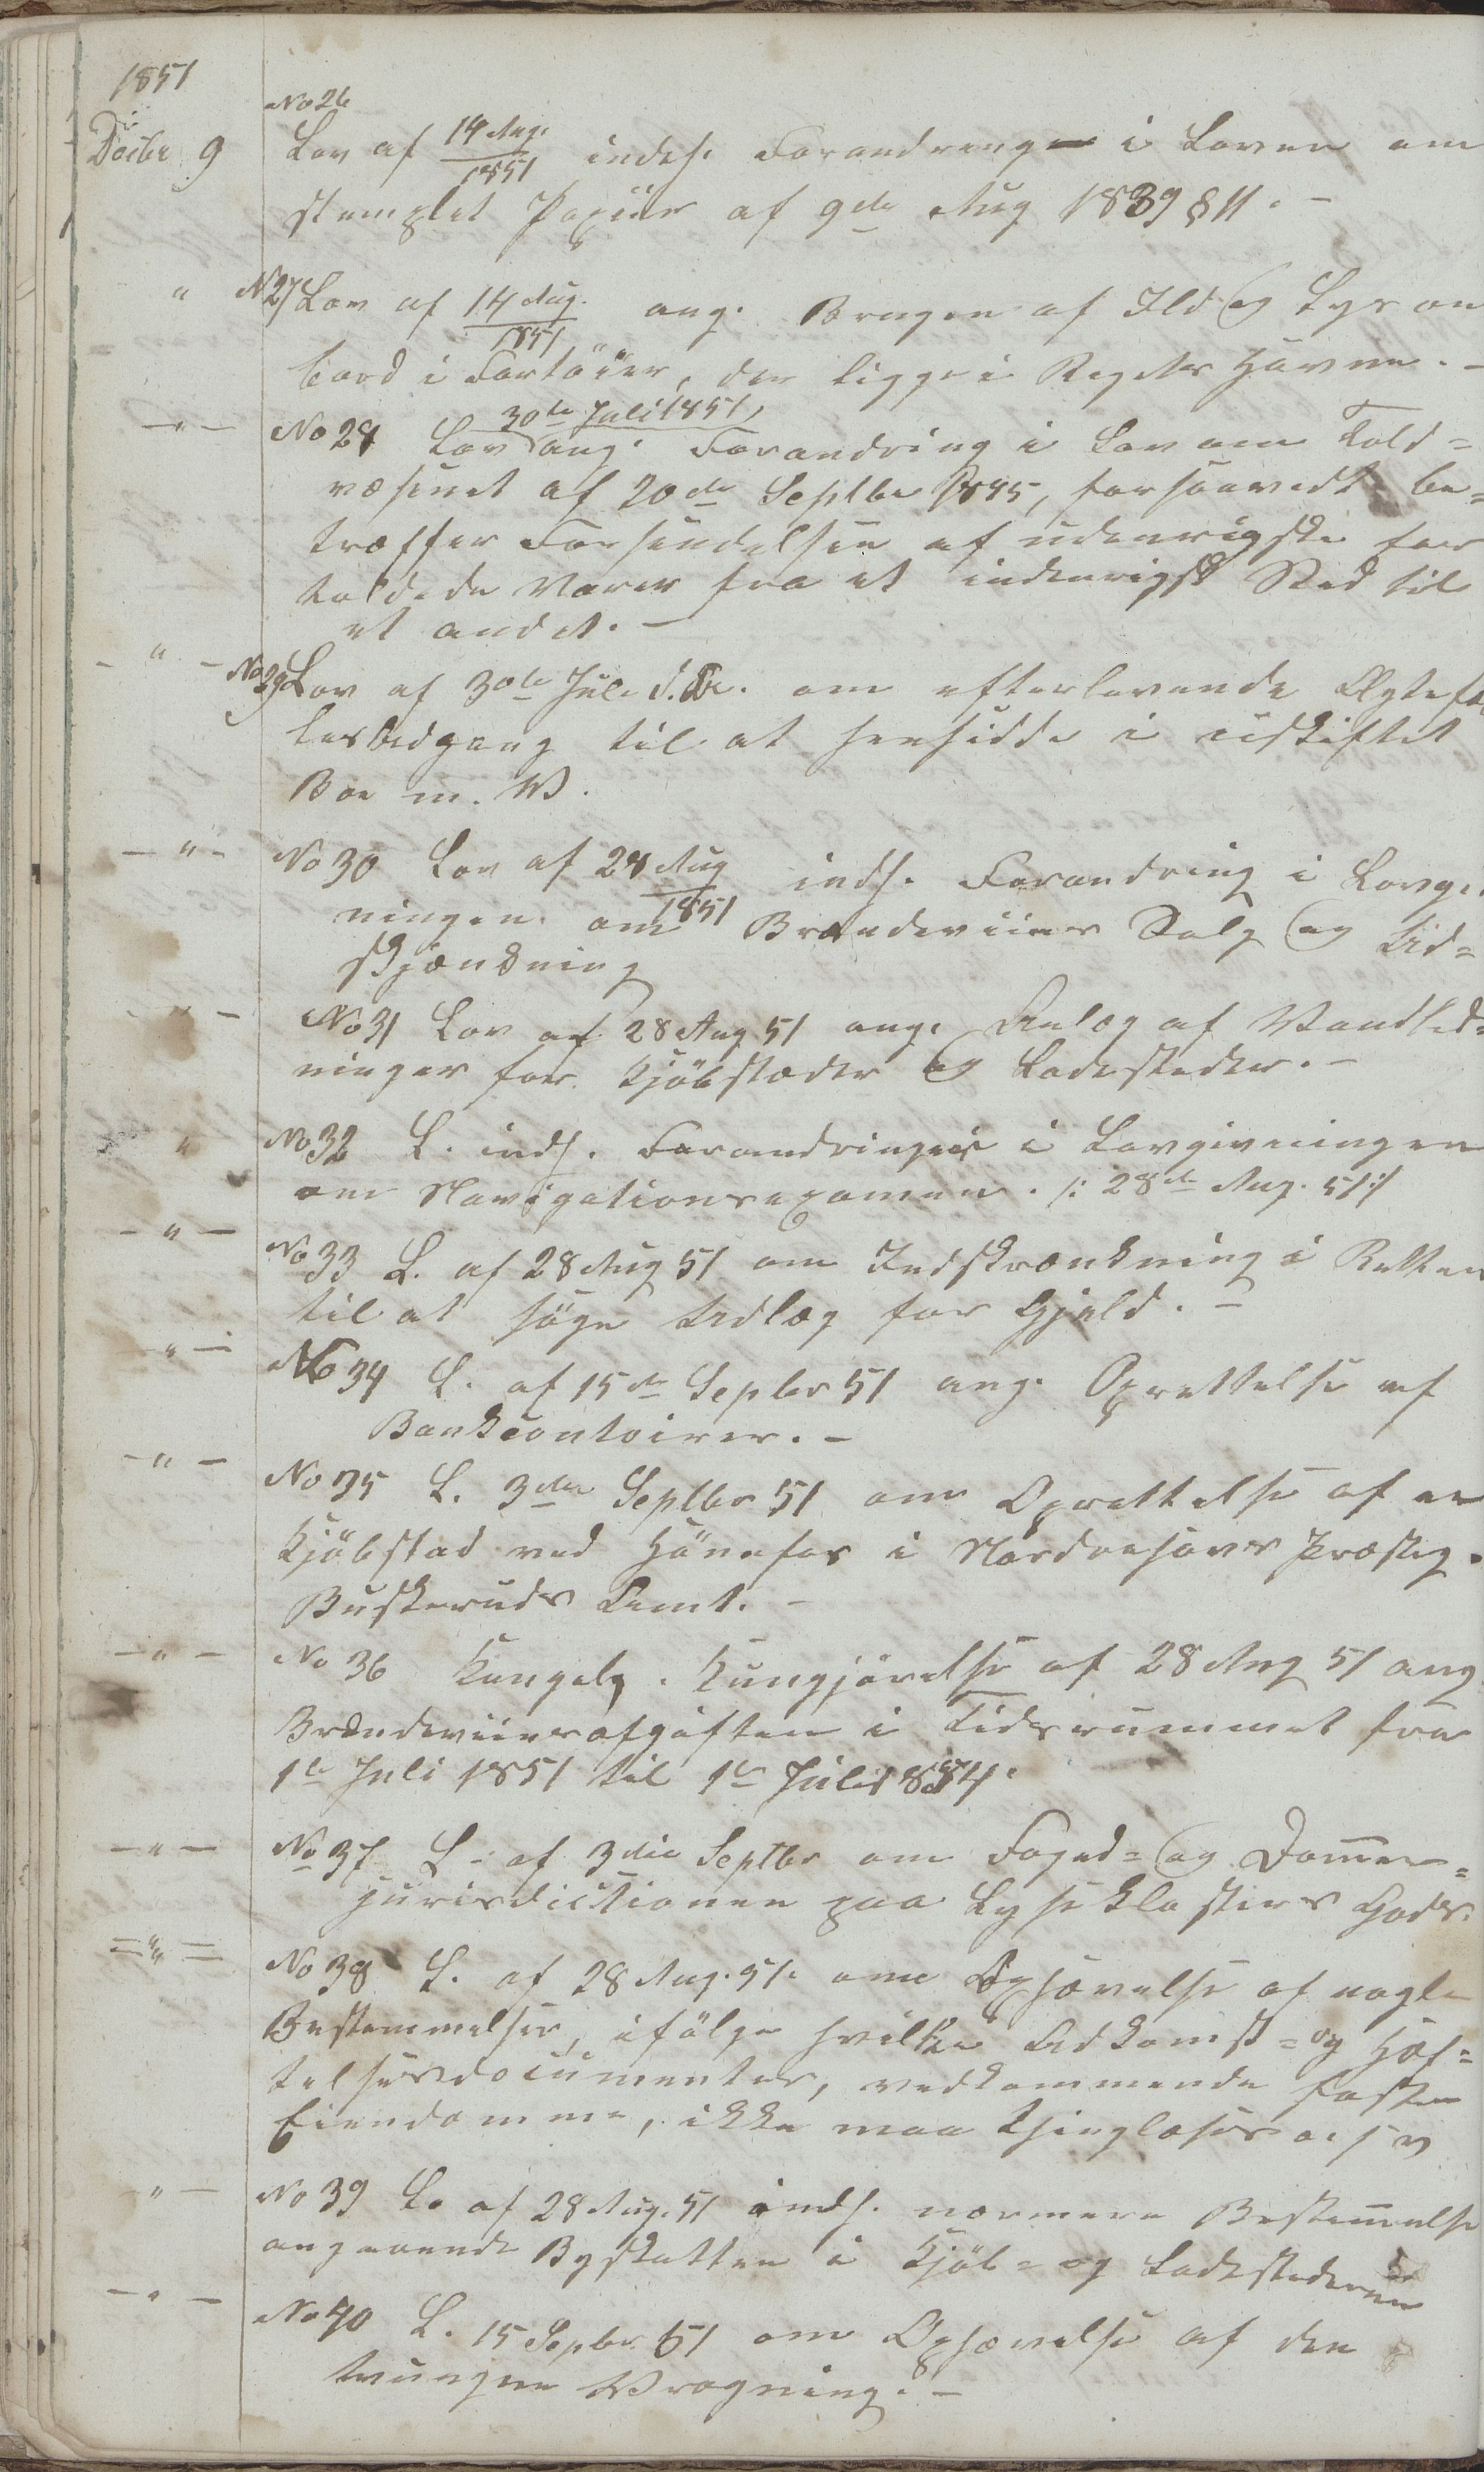 1851
No 26
Decbr 9 Lov af 14 Aug. 1851 indeh. Forandringe i Loven om
stemplet Papiir af 9de Aug 1839 § 11. -
" No 27 Lov af 14 Aug. 1851 ang. Brugen af Ild og Lys om
bord i Fartöier, der ligge i Rigets Havne. -
-"- No 28 Lov 30te Juli 1851, ang. Forandring i Lov om Told=
væsenet af 20de Septbr 1845, forsaavidt be=
træffer Forsendelsen af udenrigske for
toldede Varer fra et indenrigsk Sted til
et andet. -
-"- No 29 Lov af 30te Juli d. A. om efterlevende Ægtefæl
les Adgang til at hensidde i uskiftet
Boe m. V.
-"- No 30 Lov af 28 Aug 1851 indh. Forandring i Lovgiv
ningen om Brændeviins Salg og Ud=
skjænkning
-"- No 31 Lov af 28 Aug 51 ang. Anlæg af Vandled=
ninger for Kjöbstæder og Ladesteder. -
" No 32 L. indh. Forandringer i Lovgivningen
om Navigationsexamen. /: 28de Aug. 51 :/
-"- No 33 L. af 28 Aug 51 om Indskrænkning i Retten
til at söge Udlæg for Gjeld. -
-"- No 34 L. af 15de Sepbr 51 ang. Oprettelse af
Bankcontoirer. -
-"- No 35 L. 3die Septbr 51 om Oprettelse af en
Kjöbstad ved Hönefos i Norderhovs Præsteg.
Buskeruds Amt. -
-"- No 36 Kongelg. Kungjörelse af 28 Aug 51 ang
Brændeviinsafgiften i Tidsrummet fra
1te Juli 1851 til 1te Juli 1854.
-"- No 37 L. af 3die Septbr om Foged= og Dommer=
jurisdictionen paa Lyseklosters Gods.
="= No 38 L. af 28 Aug. 51. om Ophævelse af nogle
Bestemmelser, ifölge hvilke Adkomst= og Hæf=
telsesdocumenter, vedkommende faste
Eiendomme, ikke maa thinglæses o. s v
-"- No 39 L. af 28 Aug. 51 indh. nærmere Bestemmelse
angaaende Byskatten i Kjöb= og Ladestederne
-"- No 40 L. 15 Sepbr 51 om Ophævelse af den
tvungne Vragning. -